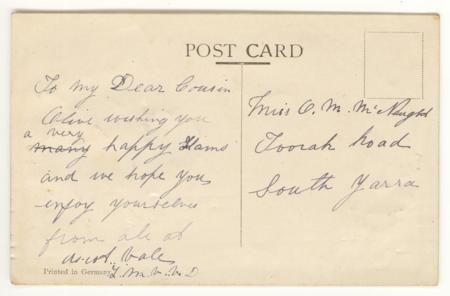 POST CARD
To my Dear Cousin
Olive wishing you
a very
many happy Hams
and we hope you
enjoy yourselves
from all at
Ascot Vale
Printed in Germany
Miss O. M. McNaught
Toorak Road
South Yarra